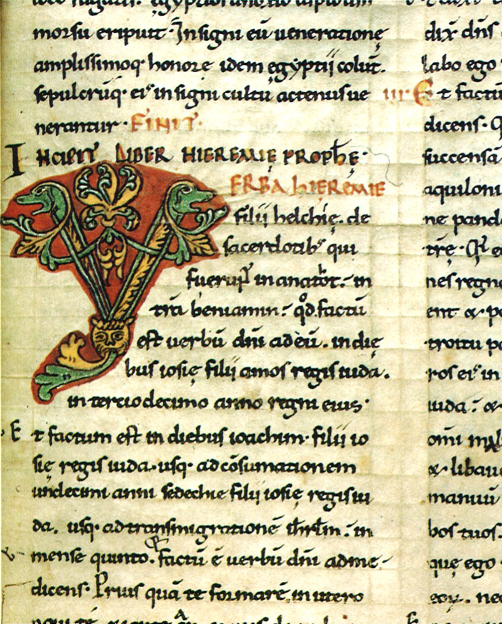 morsu eripuit. Insigni eū veneratione
amplissimoq; honore idem egyptii colūt.
sepulcrūq; eiꝰ insigni cultu actenus ve
nerantur. FINIT.
INCIPIT LIBER HIEREMIE PROPHE.
VERBA hIEREMIE
filii helchie. de
sacerdotibꝰ qui
fuerunt in anatot. in
tr̄a beniamin. qd̄ factū
est verbū dn̄i ad eū. in die
bus iosie filii amos regis iuda.
in terciodecimo anno regni eius.
Et factum est in diebus ioachim. filii io
sie regis iuda. usq; ad cōsumationem
undecimi anni sedechie filii iosie regis iu
da. usq; ad transmigrationē ihrl̄m. in
mense quinto. factū ē verbū dn̄i ad me
dicens. Prius quā te formarē in utero
dix̄ dn̄s
labo ego
Et factu
dicens.
succensā
aquiloni
ne pand
tr̄e.
nes regn
ent
troitu po
ros eiꝰ in
iuda.
om̄i
libau
manuū
bos tuos.
que ego